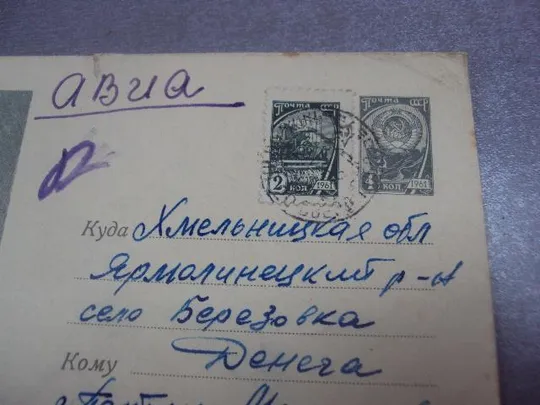 АВИА
Почта СССР
2 коп 1961
Почта СССР
4 коп 1961
Куда Хмельницкая обл
Ярмолинецкий р-н
село Березовка
Кому Денега